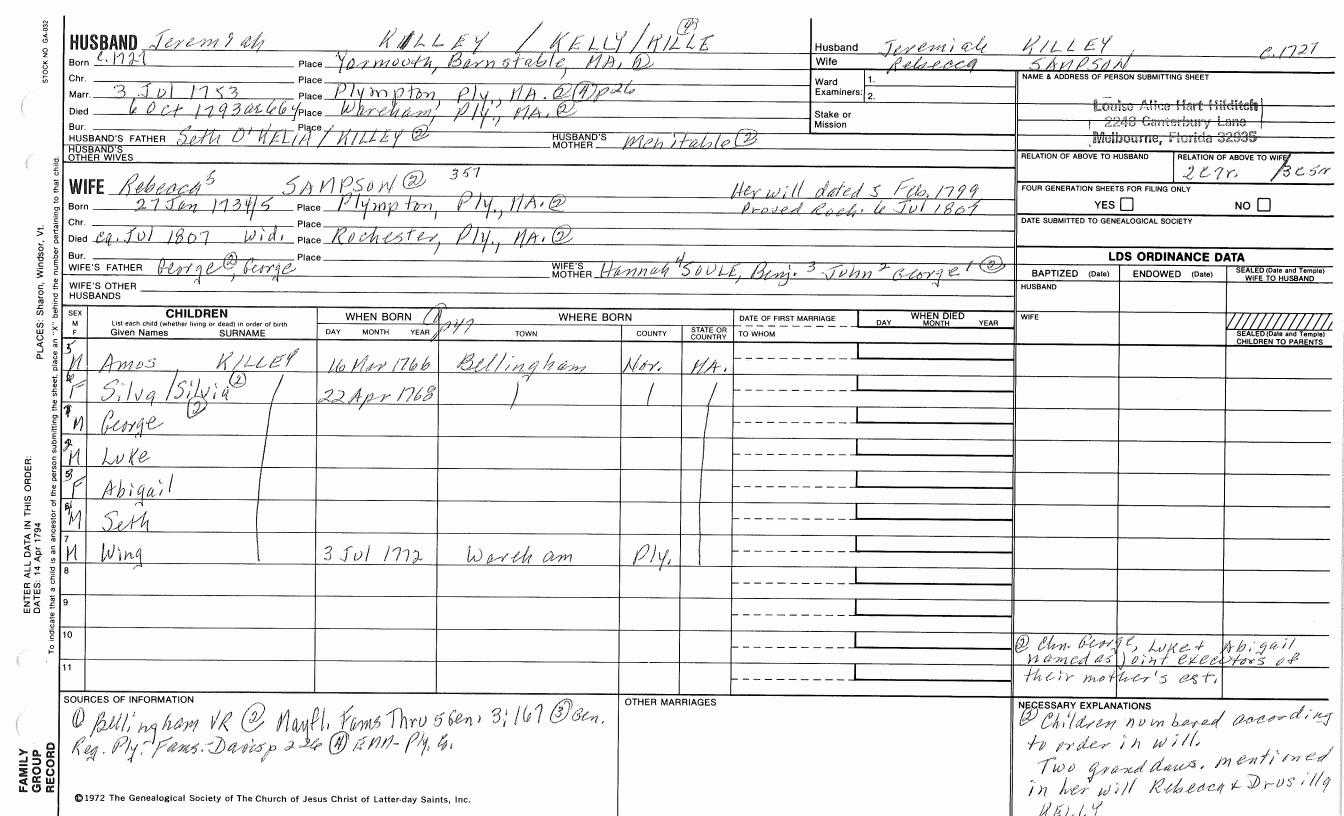 STOCK NO. GA-032
HUSBAND Jeremiah KILLEY / KELLY/KILLE ④
Born c.1727 Place Yarmouth, Barnstable, MA. ②
Chr. Place
Marr. 3 Jul 1753 Place Plympton Ply., MA. ② ④ p26
Died 6 Oct 1793 ae 66y Place Wareham, Ply., MA. ②
Bur. Place
HUSBAND'S FATHER Seth O'KELIA/KILLEY ② HUSBAND'S MOTHER Mehitable ②
HUSBAND'S OTHER WIVES
Husband Jeremiah KILLEY c.1727
Wife Rebecca SAMPSON
Ward Examiners: 1.
2.
Stake or Mission
NAME & ADDRESS OF PERSON SUBMITTING SHEET
Louise Alice Hart Hilditch
2248 Canterbury Lane
Melbourne, Florida 32935
RELATION OF ABOVE TO HUSBAND
RELATION OF ABOVE TO WIFE
FOUR GENERATION SHEETS FOR FILING ONLY
YES NO
DATE SUBMITTED TO GENEALOGICAL SOCIETY
WIFE Rebecca⁵ SAMPSON ② 357
Her will dated 5 Feb, 1799
Born 27 Jan 1734/5 Place Plympton, Ply., MA. ②
Proved Roch. 6 Jul 1807
Chr. Place
Died ca. Jul 1807 Wid. Place Rochester, Ply., MA. ②
Bur. Place
WIFE'S FATHER George ②, George WIFE'S MOTHER Hannah⁴ SOULE, Benj.³ John² George¹ ②
WIFE'S OTHER HUSBANDS
LDS ORDINANCE DATA
BAPTIZED (Date) ENDOWED (Date) SEALED (Date and Temple) WIFE TO HUSBAND
HUSBAND
WIFE
SEALED (Date and Temple) CHILDREN TO PARENTS
SEX M F
CHILDREN
List each child (whether living or dead) in order of birth
Given Names SURNAME
WHEN BORN
DAY MONTH YEAR
WHERE BORN
TOWN COUNTY STATE OR COUNTRY
DATE OF FIRST MARRIAGE
TO WHOM
WHEN DIED
DAY MONTH YEAR
M Amos KILLEY 16 Mar 1766 Bellingham Nor. MA.
F Silva/Silvia ② 22 Apr 1768
M George ②
M Luke
F Abigail
M Seth
7 M Wing 3 Jul 1772 Wareham Ply.
8
9
10
11
② Chn. George, Luke & Abigail
named as joint executors of
their mother's est.
SOURCES OF INFORMATION
① Bellingham VR ② Mayfl. Fams Thru 5 Gen. 3:167 ③ Gen.
Reg. Ply. Fams. Davis p 226 ④
OTHER MARRIAGES
NECESSARY EXPLANATIONS
② Children numbered according
to order in will.
Two grand daus. mentioned
in her will Rebecca & Drusilla
KELLY
©1972 The Genealogical Society of The Church of Jesus Christ of Latter-day Saints, Inc.
FAMILY GROUP RECORD
ENTER ALL DATA IN THIS ORDER:
DATES: 14 Apr 1794
PLACES: Sharon, Windsor, Vt.
To indicate that a child is an ancestor of the person submitting the sheet, place an "X" behind the number pertaining to that child.